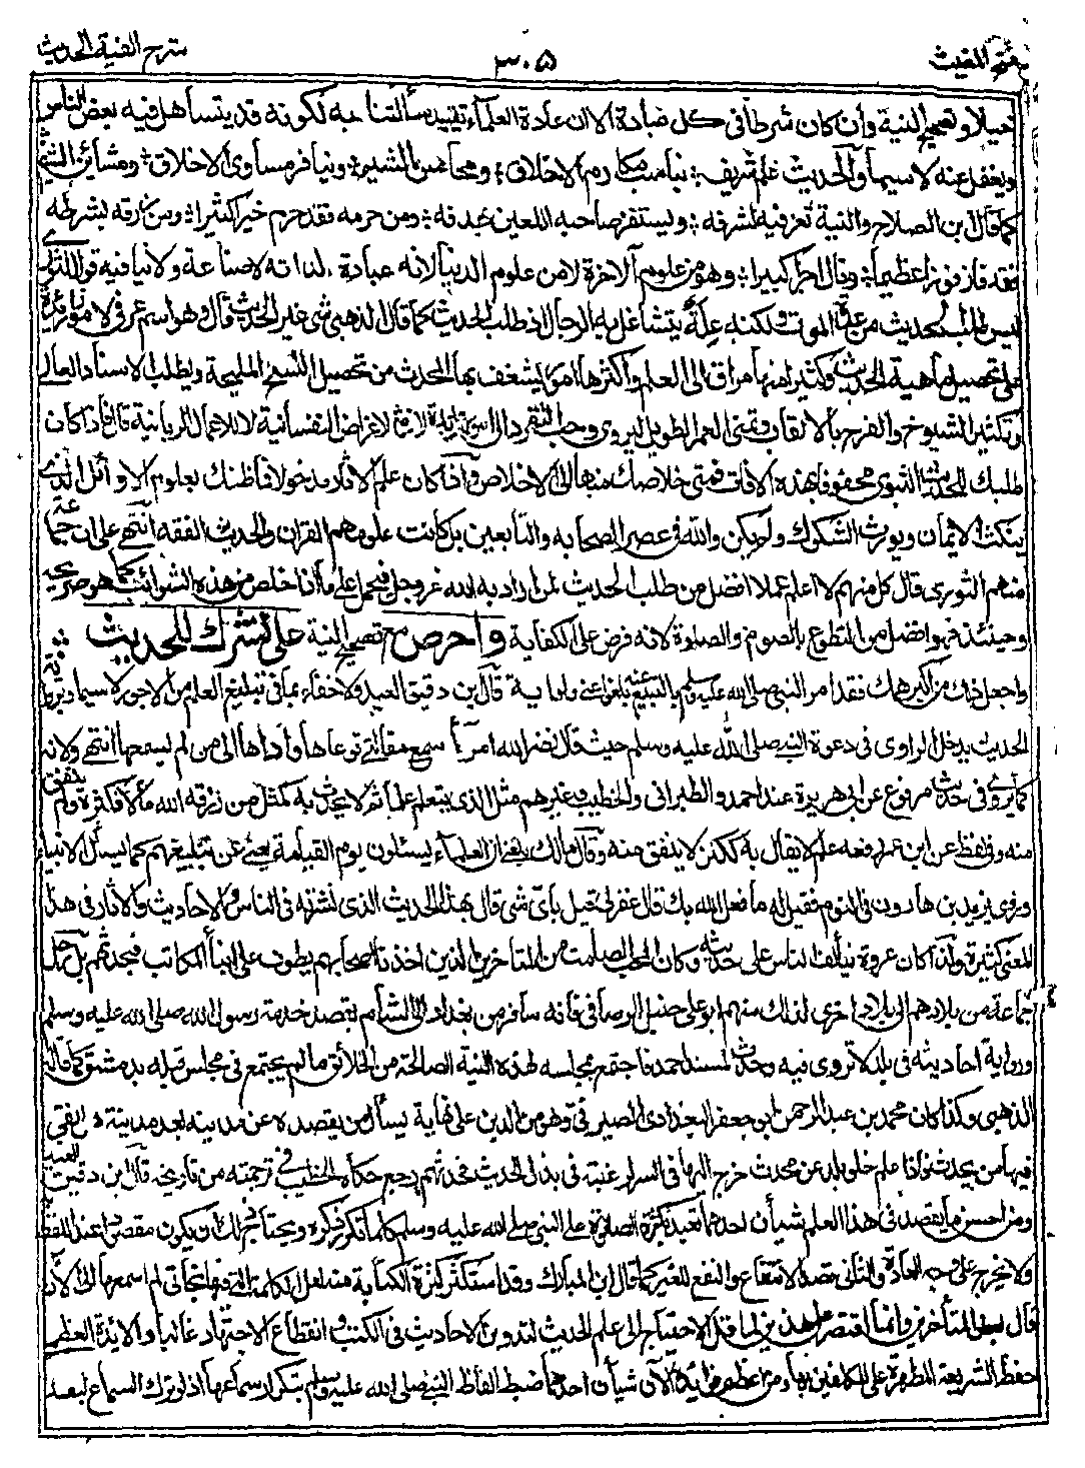 فتح المغيث ٣٠٥ شرح الفية الحديث
وتصحيح النية وان كان شرطا فى كل عبادة الا ان عادة العلماء تقييد مسألتنا به لكونه قد يتساهل فيه بعض الناس
ويغفل عنه لا سيما والحديث علم شريف يناسب مكارم الاخلاق ومحاسن الشيم وينافر مساوى الاخلاق ومشائن الشيم
كما قال ابن الصلاح والنية تعز فيه لشرفه ويستفز صاحبه اللعين ومن حرمه فقد حرم خيرا كثيرا ومن رزقه بشرطه
فقد فاز فوزا عظيما ونال اجرا كبيرا وهو من علوم الآخرة لا من علوم الدنيا لانه عبادة لذاته لا صناعة ولا ينافيه قول الثورى
ليس طلب الحديث من عدة الموت ولكنه علة يتشاغل به الرجال اذ طلب الحديث كما قال الذهبى شئ غير الحديث قال وهو اسم عرفى لامور زائدة
على تحصيل ماهية الحديث وكثير منها مراق الى العلم واكثرها امور يشغف بها المحدث من تحصيل النسخ المليحة وتطلب الاسناد العالى
وتكثير الشيوخ والفرح بالالقاب وتمنى العمر الطويل ليروى وحب التفرد الى امور عديدة لازمة للاغراض النفسانية لا للاعمال الربانية قال فاذا كان
طلبك للحديث النبوى محفوفا بهذه الآفات فمتى خلاصك منها الى الاخلاص واذا كان علم الآثار مدخولا فما ظنك بعلوم الاوائل التى
تنكث الايمان وتورث الشكوك ولم تكن والله فى عصر الصحابة والتابعين بل كانت علومهم القرآن والحديث والفقه انتهى على ان جماعة
منهم الثورى قال كل منهم لا اعلم عملا افضل من طلب الحديث لمن اراد به الله عز وجل فيحمل على ما اذا خلص من هذه الشوائب كما هو صريحه
وحينئذ فهو افضل من التطوع بالصوم والصلوة لانه فرض على الكفاية واحرص مع تصحيح النية على نشرك للحديث
واجعل ذلك من اكبر همك فقد امر النبى صلى الله عليه وسلم بالتبليغ عنه بلغوا عنى ولو آية قال ابن دقيق العيد ولا خفاء بما فى تبليغ العلم من الاجور لا سيما وبرواية
الحديث يدخل الراوى فى دعوة النبى صلى الله عليه وسلم حيث قال نضر الله امرأ سمع مقالتى فوعاها واداها الى من لم يسمعها انتهى ولانه
كما يروى فى حديث مرفوع عن ابى هريرة عند احمد والطبرانى والخطيب وغيرهم مثل الذى يتعلم علما ثم لا يحدث به كمثل من رزقه الله مالا فكنزه ولم ينفق
منه وفى لفظ عن ابن عمر رفعه علم لا يقال به ككنز لا ينفق منه وقال مالك بلغنى ان العلماء يسئلون يوم القيامة يعنى عن تبليغهم كما يسأل الانبياء
ورؤى يزيد بن هارون فى النوم فقيل له ما فعل الله بك قال غفر لى قيل باى شئ قال بهذا الحديث الذى نشرته فى الناس والاحاديث والآثار فى هذا
المعنى كثيرة ولذا كان عروة يتألف الناس على حديثه وكان المحب الصامت من المتأخرين الذين اخذنا عن اصحابهم يطوف على ابناء المكاتب فيحدثهم بل رحل
جماعة من بلادهم الى بلاد اخرى لذلك منهم ابو على حنبل الرصافى فانه سافر من بغداد الى الشام بقصد خدمة رسول الله صلى الله عليه وسلم
ورواية احاديثه فى بلد لا تروى فيه وحدث بمسند احمد فاجتمع بمجلسه لهذه النية الصالحة من الخلائق ما لم يجتمع فى مجلس قبله بدمشق كما قاله
الذهبى وكذا كان محمد بن عبد الرحمن ابن جعفر البغدادى الصيرفى وهو من الدين على نهاية يسأل من يقصده عن مدينة بعد مدينة هل بقى
فيها من يحدث فاذا علم خلو بلد عن محدث خرج اليها فى السر رغبة فى بذل الحديث فحدثهم ورجع حكاه الخطيب فى ترجمته من تاريخه قال ابن دقيق العيد
ومن احسن ما يقصد فى هذا العلم شيأن احدهما تعبد بكثرة الصلوة على النبى صلى الله عليه وسلم كلما تكرر ذكره ويحتاج ذلك ان يكون مقصودا عند اللفظ
ولا يخرج على وجه العادة والثانى قصد الانتفاع والنفع للغير كما قال ابن المبارك وقد استكثر كثرة الكتابة منه لعل الكلمة التى فيها نجاتى لم اسمعها الى الآن
قال بعض المتأخرين وانما اقتصر على هذين لما قل الاحتياج الى علم الحديث لتدوين الاحاديث فى الكتب وانقطاع الاجتهاد غالبا والا فائدته العظمى
حفظ الشريعة المطهرة على المكلفين بها ومن اعظم فوائده الآن شيأن احدهما ضبط الفاظ النبى صلى الله عليه وسلم بتكرار سماعها اذ لو ترك السماع لبعد